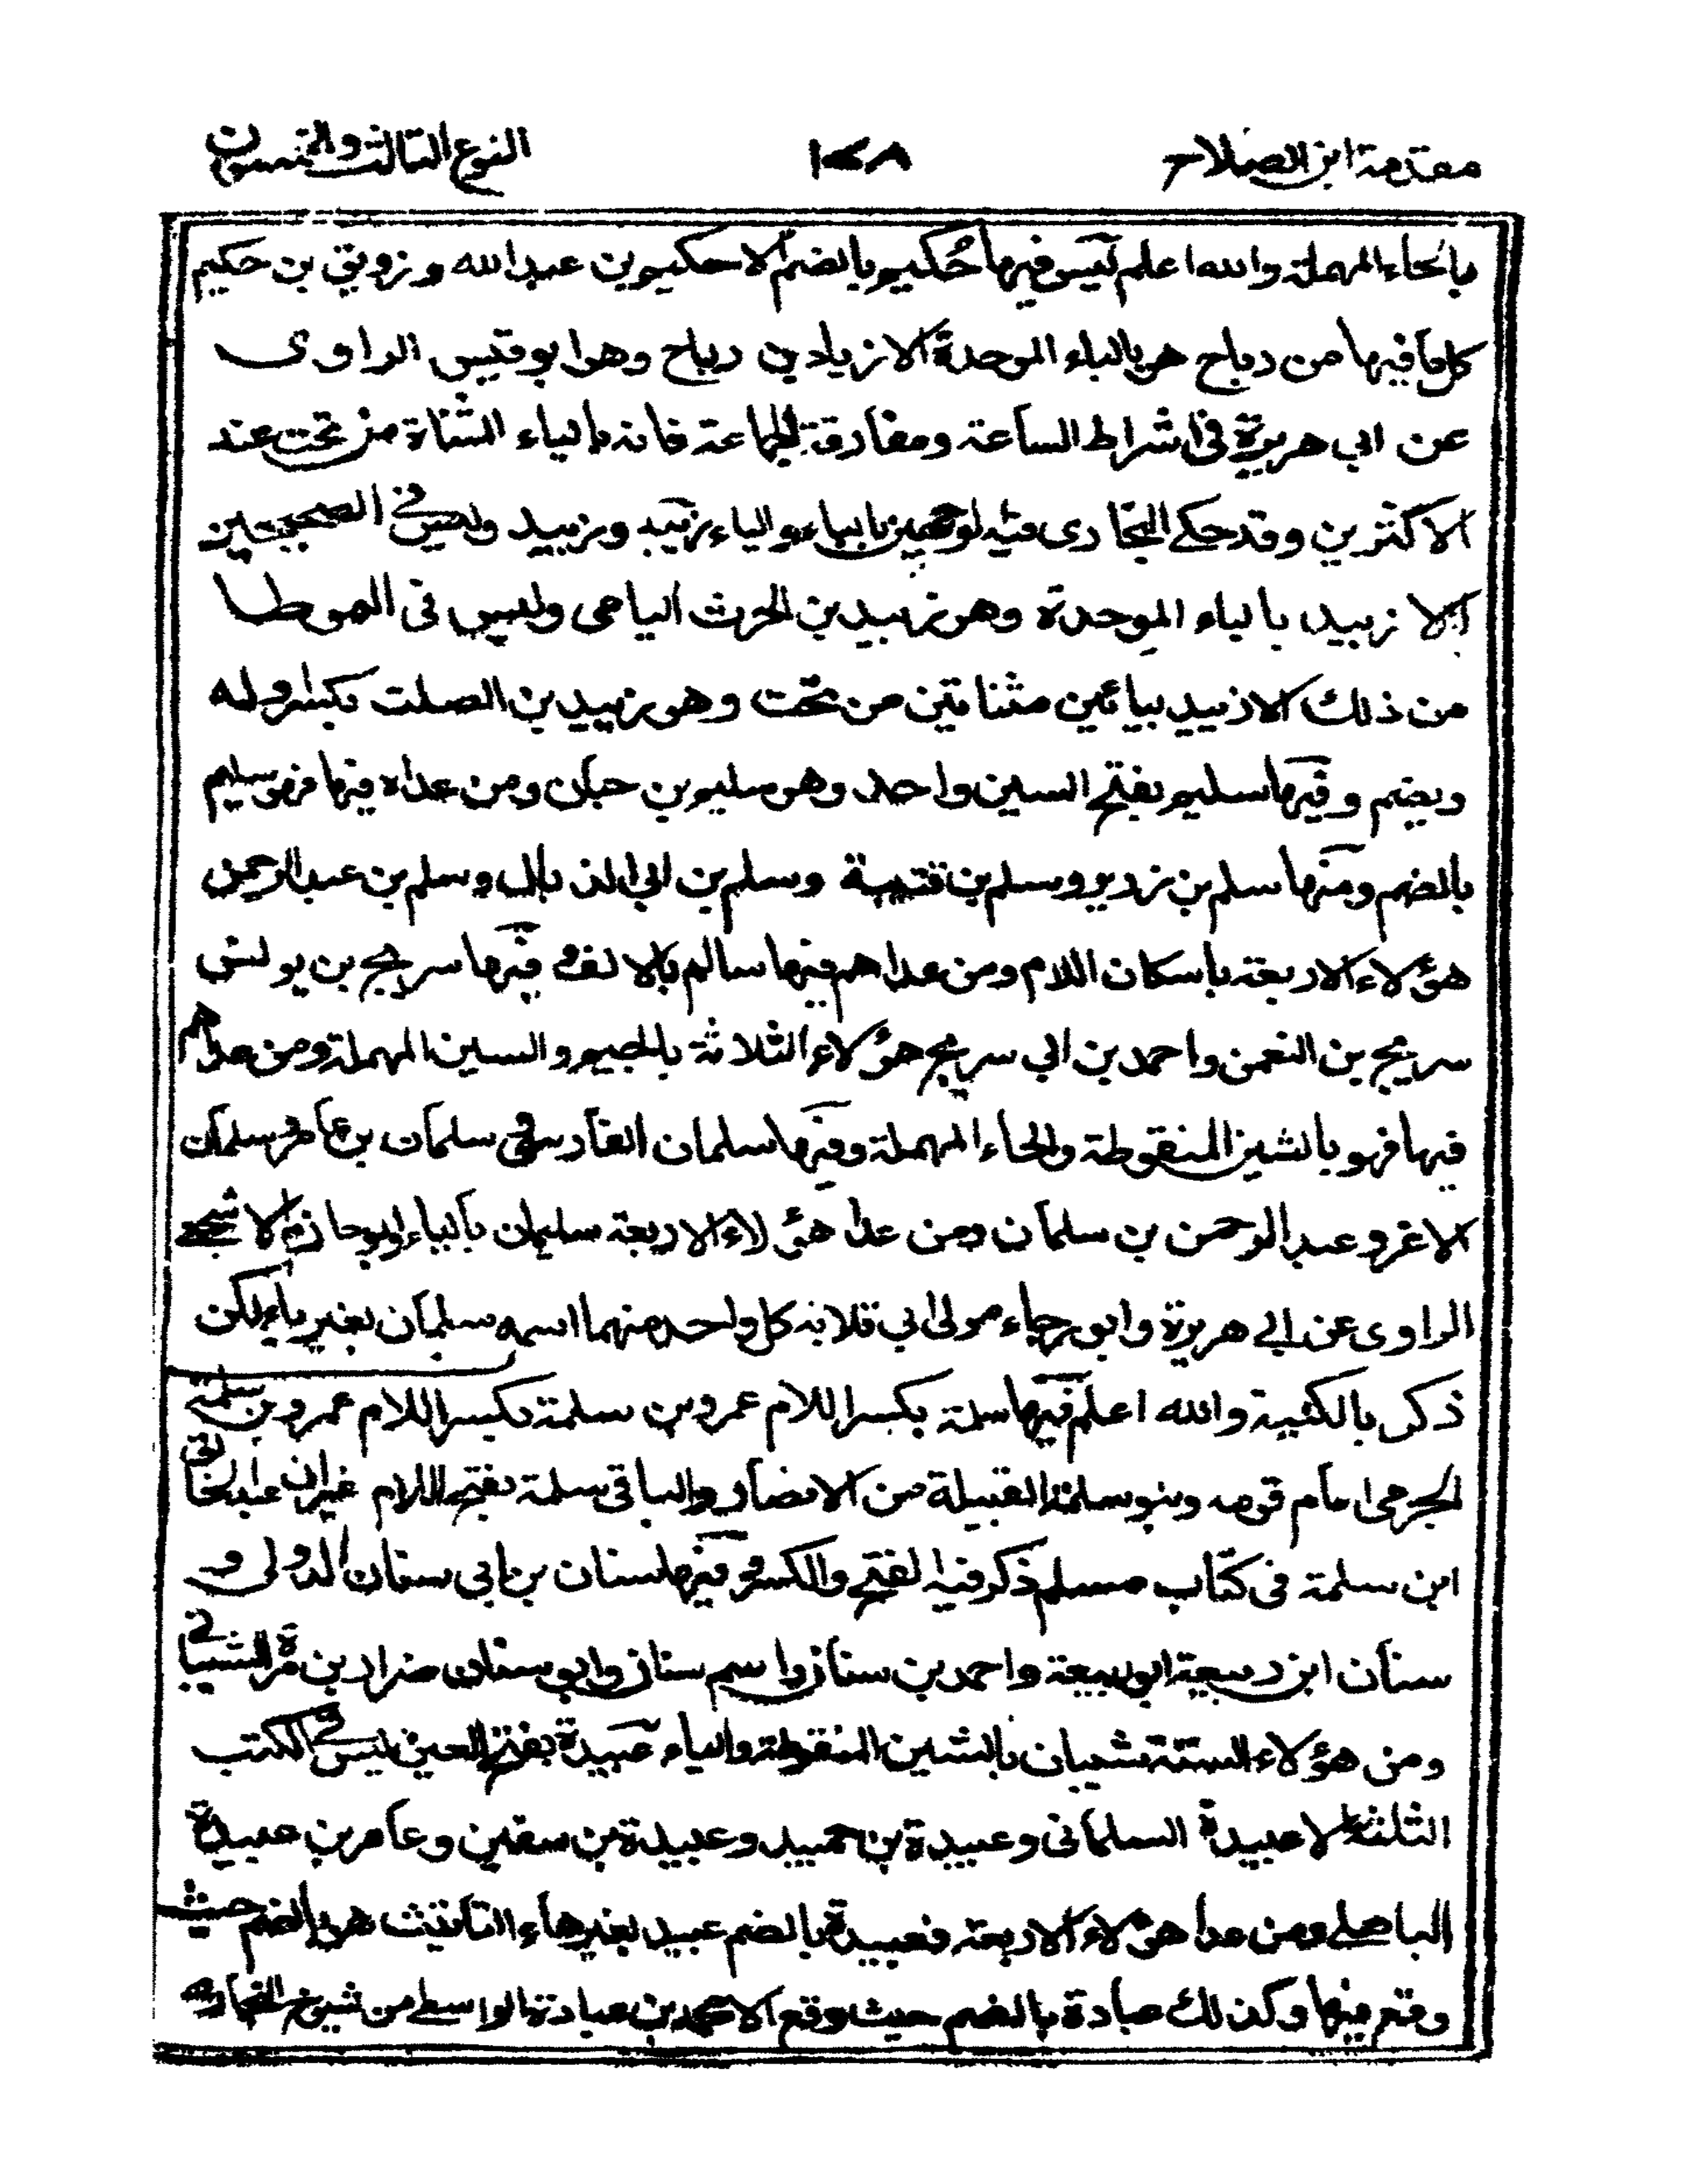 مقدمة ابن الصلاح
١٤٨
النوع الثالث والخمسون
بالحاء المهملة والله اعلم ليس فيها حُكيم بالضم الا حكيم بن عبد الله وزريق بن حكيم
كل ما فيها من رباح هو بالباء الموحدة الا زياد بن رياح وهو ابو قيس الراوى
عن ابي هريرة في اشراط الساعة ومفارقة الجماعة فانه بالياء المثناة من تحت عند
الاكثرين وقد حكى البخارى فيه الوجهين بالباء والياء زبيد وزييد وليس في الصحيحين
الا زبيد بالباء الموحدة وهو زبيد بن الحرث اليامى وليس فى الموطا
من ذلك الا زييد بيائين مثناتين من تحت وهو زييد بن الصلت بكسر اوله
ويضم وفيها سليم بفتح السين واحد وهو سليم بن حبان ومن عداه فيها فهو سليم
بالضم ومنها سلم بن زرير وسلم بن قتيبة وسلم بن ابي الذيال وسلم بن عبد الرحمن
هؤلاء الاربعة باسكان اللام ومن عداهم فيها سالم بالالف وفيها سريج بن يونس
سريج بن النعمن واحمد بن ابي سريج هؤلاء الثلاثة بالجيم والسين المهملة ومن عداهم
فيها فهو بالشين المنقوطة والحاء المهملة وفيها سلمان الفارسي سلمان بن عامر سلمان
الاغر وعبد الرحمن بن سلمان ومن عدا هؤلاء الاربعة سليمان بالياء وابو حازم الاشجعي
الراوى عن ابي هريرة وابو رجاء مولى ابي قلابة كل واحد منهما اسمه سلمان بغير ياء لكن
ذكر بالكنية والله اعلم فيها سلمة بكسر اللام عمرو بن سلمة بكسر اللام عمرو بن سلمة
الجرمى امام قومه وبنو سلمة القبيلة من الانصار والباقى سلمة بفتح اللام غير ان عبد الخالق
ابن سلمة فى كتاب مسلم ذكر فيه الفتح والكسر وفيها سنان بن ابي سنان الدولى و
سنان ابن ربيعة ابو ربيعة واحمد بن سنان واسم سنان وابو سنان ضرار بن مرة الشيباني
ومن هؤلاء الستة شيبان بالشين المنقوطة والياء عبيدة بفتح العين ليس في الكتب
الثلثة الا عبيدة السلمانى وعبيدة بن حميد وعبيدة بن سفين وعامر بن عبيدة
الباهلى ومن عدا هؤلاء الاربعة فعبيدة بالضم عبيد بغير هاء التانيث هو بالضم حيث
وقع فيها وكذلك عبادة بالضم حيث وقع الا محمد بن عبادة الواسطى من شيوخ البخارى